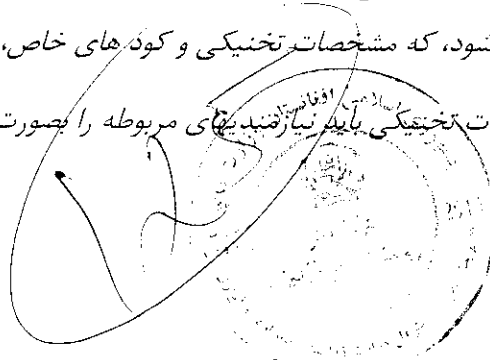 شود، که مشخصات تخنیکی و کود های خاص،
ت تخنیکی باید نیازمندیهای مربوطه را بصورت
اسلامی افغانستان